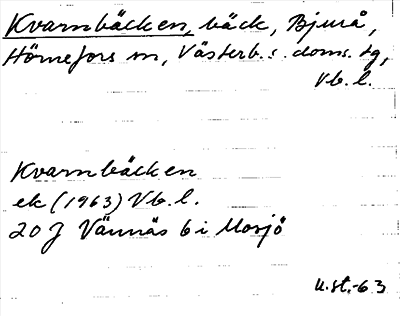 Kvarnbäcken, bäck, Bjurå,
Hörnefors sn, Västerb. s. doms. tg,
Vb. l.
Kvarnbäcken
ek (1963) Vb. l.
20 J Vännäs 6 i Mosjö
U.st.-63